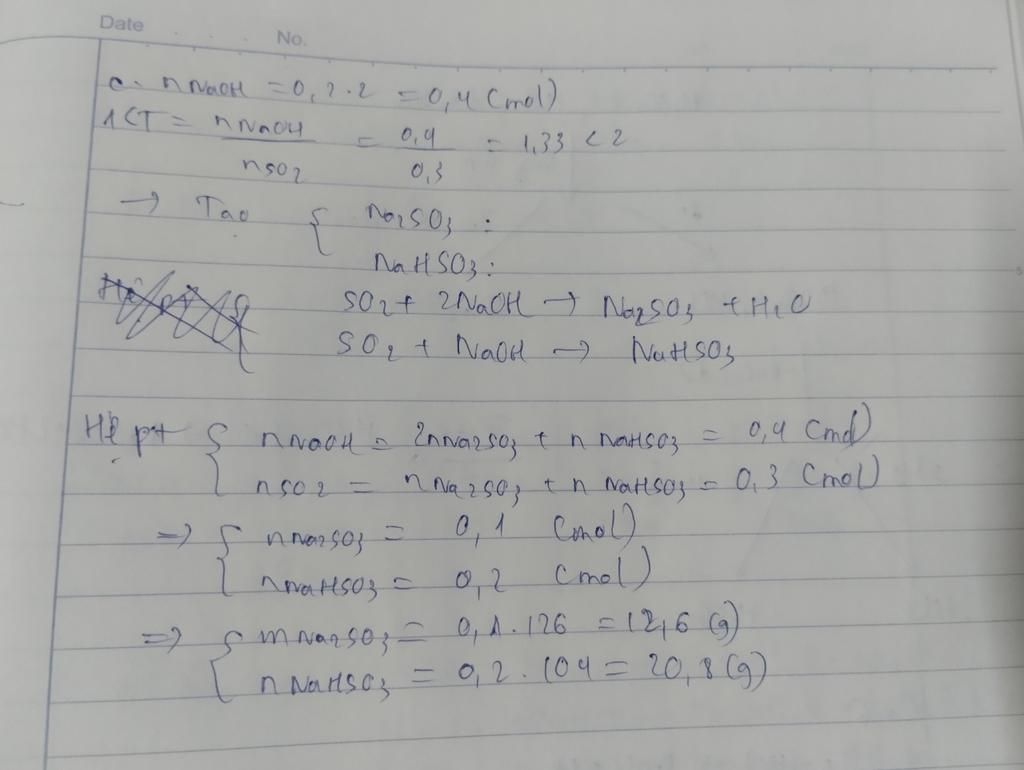 Date No.
c. nNaOH = 0,2.2 = 0,4 (mol)
1CT = nNaOH / nSO2 = 0,4 / 0,3 = 1,33 < 2
→ Tạo { Na2SO3 :
NaHSO3 :
SO2 + 2NaOH → Na2SO3 + H2O
SO2 + NaOH → NaHSO3
Hệ pt { nNaOH = 2nNa2SO3 + nNaHSO3 = 0,4 (mol)
nSO2 = nNa2SO3 + nNaHSO3 = 0,3 (mol)
=> { nNa2SO3 = 0,1 (mol)
nNaHSO3 = 0,2 (mol)
=> { mNa2SO3 = 0,1.126 = 12,6 (g)
nNaHSO3 = 0,2.104 = 20,8 (g)